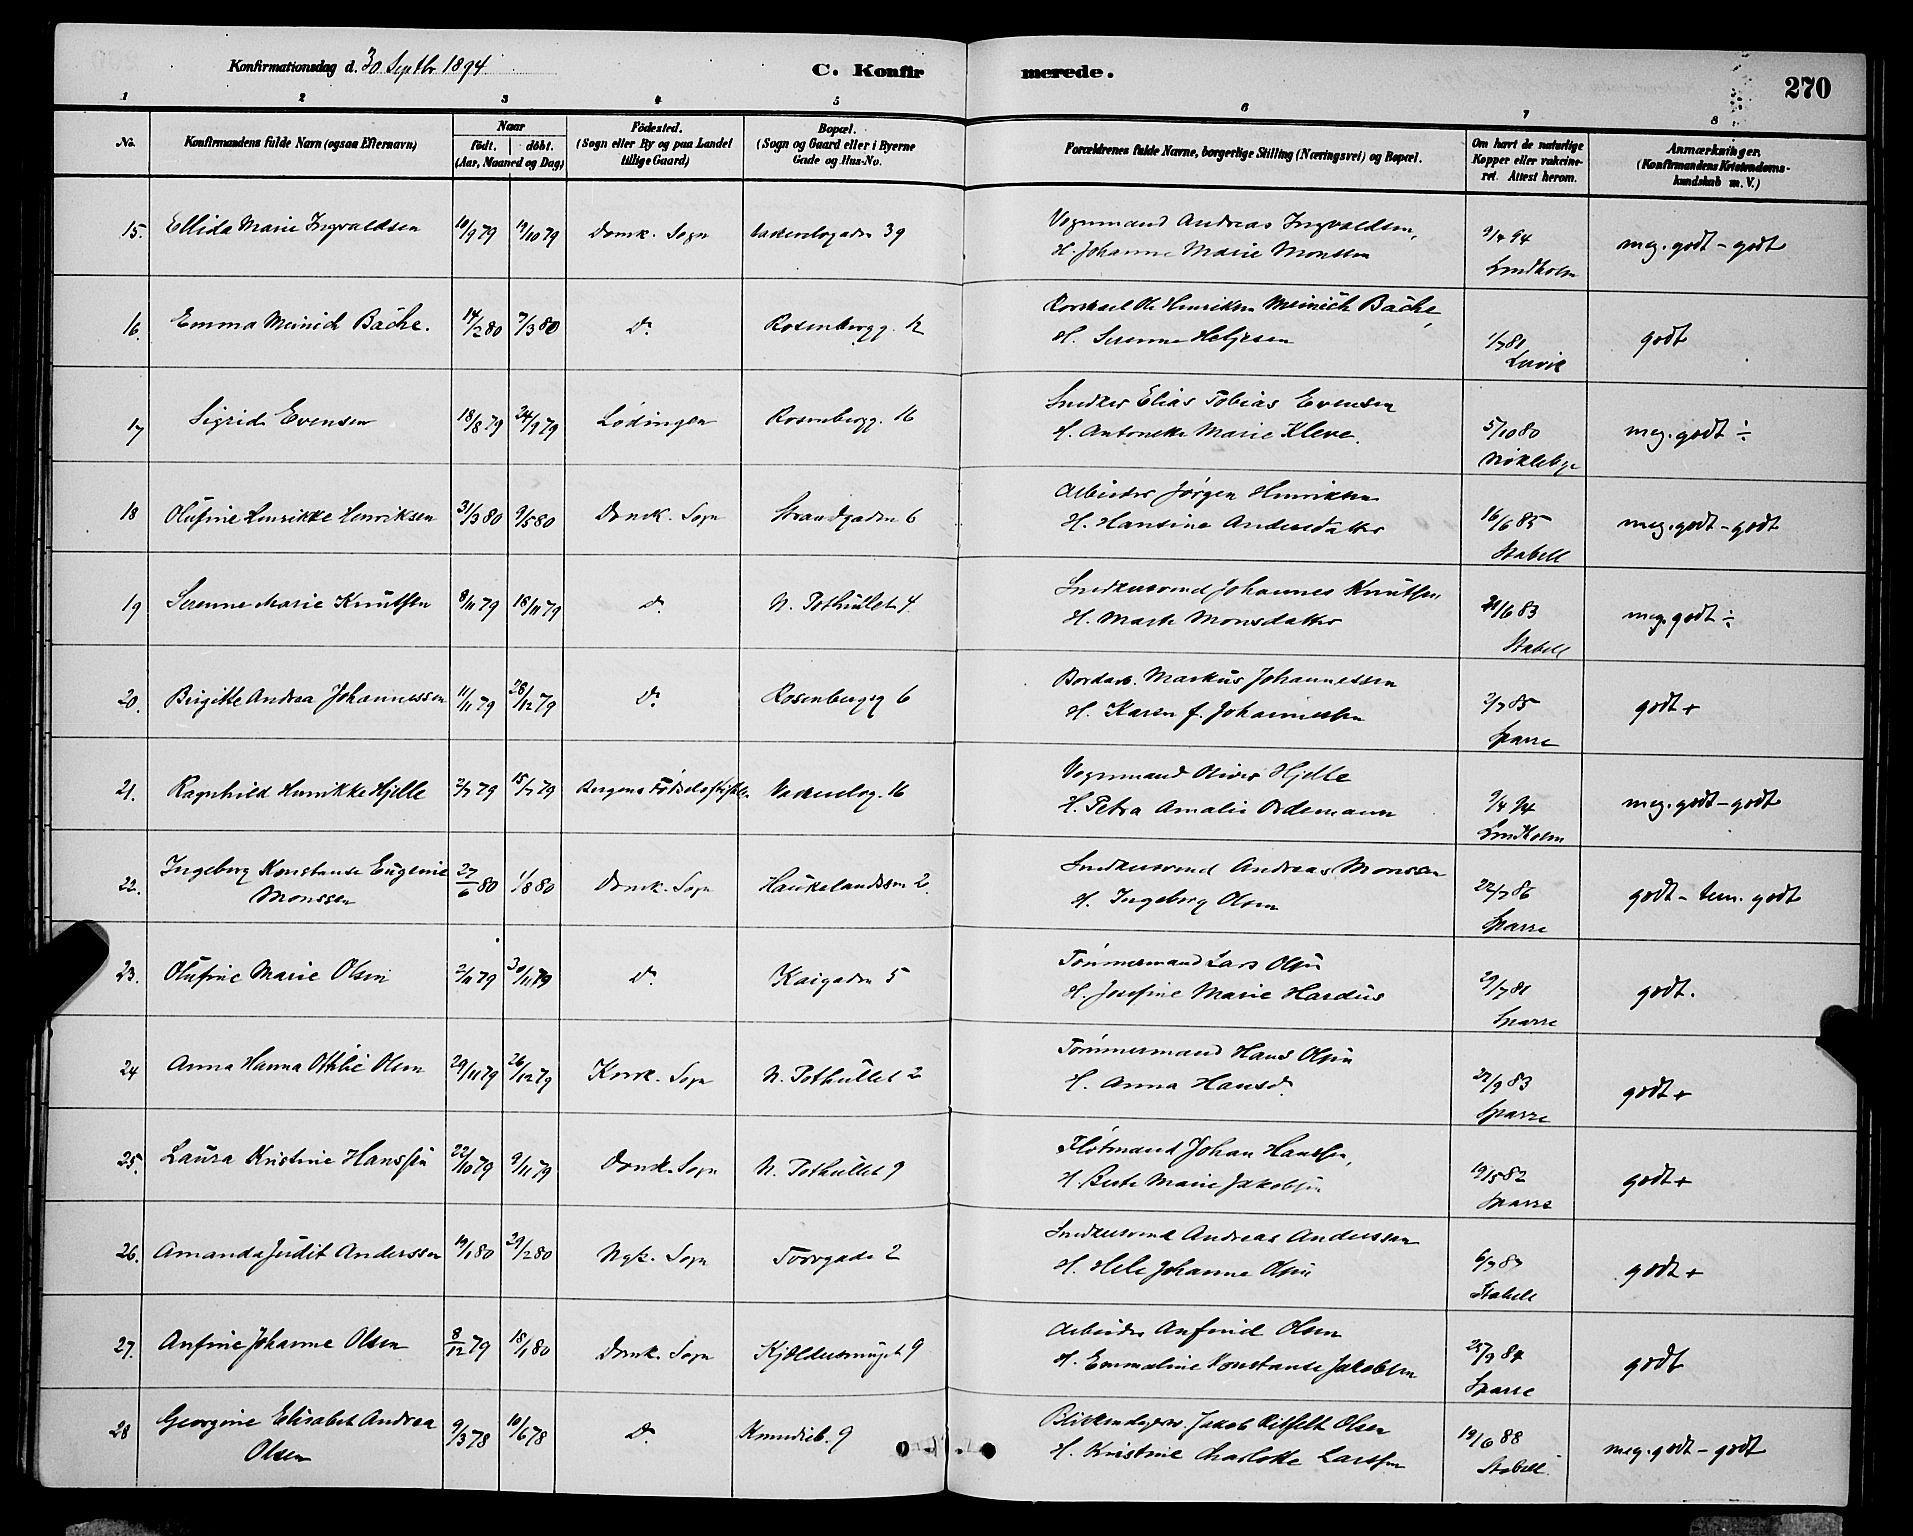 Konfirmationsdag d. 30 Septbr 1894 C. Konfirmerede. 270
1 2 3 4 5 6 7 8
No. Konfirmandens fulde Navn (ogsaa Efternavn) Naar født. døbt. (Aar, Maaned og Dag) Fødested. (Sogn eller By og paa Landet tillige Gaard) Bopæl. (Sogn og Gaard eller i Byerne Gade og Hus-No. Forældrenes fulde Navne, borgerlige Stilling (Næringsvei) og Bopæl. Om havt de naturlige Kopper eller vakcineret. Attest herom. Anmærkninger. (Konfirmandens Kristendomskundskab m. V.)
15. Ellida Marie Ingvaldsen 10/9 79 19/10 79 Domk. Sogn 39 Vognmand Andreas Ingvaldsen,
H. Johanne Marie Monsen 9/4 94 Lindholm meg. godt - godt
16. Emma Meinich Bache. 14/2 80 7/3 80 Do. Rosenbergg. 12 Henriksen Meinich Bache,
H. Serenne Heljesen 1/7 81 godt
17 Sigrid Evensen 18/8 79 24/9 79 Lødingen Rosenbergg. 16 Snedker Elias Tobias Evensen
H. Antonette Marie Kleve. 5/10 80 meg. godt ÷
18 Olufine Henrikke Henriksen 31/3 80 9/5 80 Domk. Sogn Strandgaden 6 Arbeider Jørgen Henriksen
H. Hansine Andersdatter 16/6 85 Stabell meg. godt - godt
19 Serenne Marie Knutsen 8/11 79 18/11 79 Do. N. Pothullet 4 Snedkersvend Johannes Knutsen
H. Marte Monsdatter 21/6 83 Stabell meg. godt ÷
20. Birgitte Andrea Johannessen 11/11 79 28/12 79 Do. Rosenbergg 6 Bordarb. Markus Johannessen
H. Karen f. Johannessen 2/7 85 Sparre godt +
21. Ragnhild Henrikke Hjelle 2/7 79 15/7 79 Bergens Fødselsstiftelse 16 Vognmand Oliver Hjelle
H. Petra Amalie Ordemann 9/4 94 Lindholm meg. godt - godt
22. Ingeborg Konstanse Eugenie Monssen 27/6 80 1/8 80 Domk. Sogn Haukelandsvn 2. Snedkersvend Andreas Monssen
H. Ingeborg Olsen 22/7 86 Sparre godt - tem. godt
23. Olufine Marie Olsen 2/11 79 30/11 79 Do. Kaigaden 5 Tømmermand Lars Olsen
H. Josefine Marie Hardus 29/7 81 Sparre godt.
24 Anna Hanna Ottilie Olsen 29/11 79 26/12 79 Korsk. Sogn N. Pothullet 2 Tømmermand Hans Olsen
H. Anna Hansd. 27/9 83 Sparre godt +
25. Laura Kristine Hanssen 22/10 79 9/11 79 Domk. Sogn N. Pothullet 9 Fløtmand Johan Hanssen,
H. Berte Marie Jakobsen 19/5 82 Sparre godt +
26. Amanda Judit Anderssen 19/1 80 29/2 80 Nyk. Sogn Torvgade 2 Snedkersvend Andreas Anderssen
H. Hele Johanne Olsen 6/7 87 Stabell godt +
27. Anfine Johanne Olsen 8/12 79 18/1 80 Domk. Sogn Kjeldersmuget 9 Arbeider Anfind Olsen
H. Emmaline Konstanse Jakobsen 25/9 84 Sparre godt
28 Georgine Elisabet Andrea Olsen 9/3 78 10/6 78 Do. 9 Jakob Ditleft Olsen
H. Kristine Charlotte Larssen 19/6 88 Stabell. meg. godt - godt